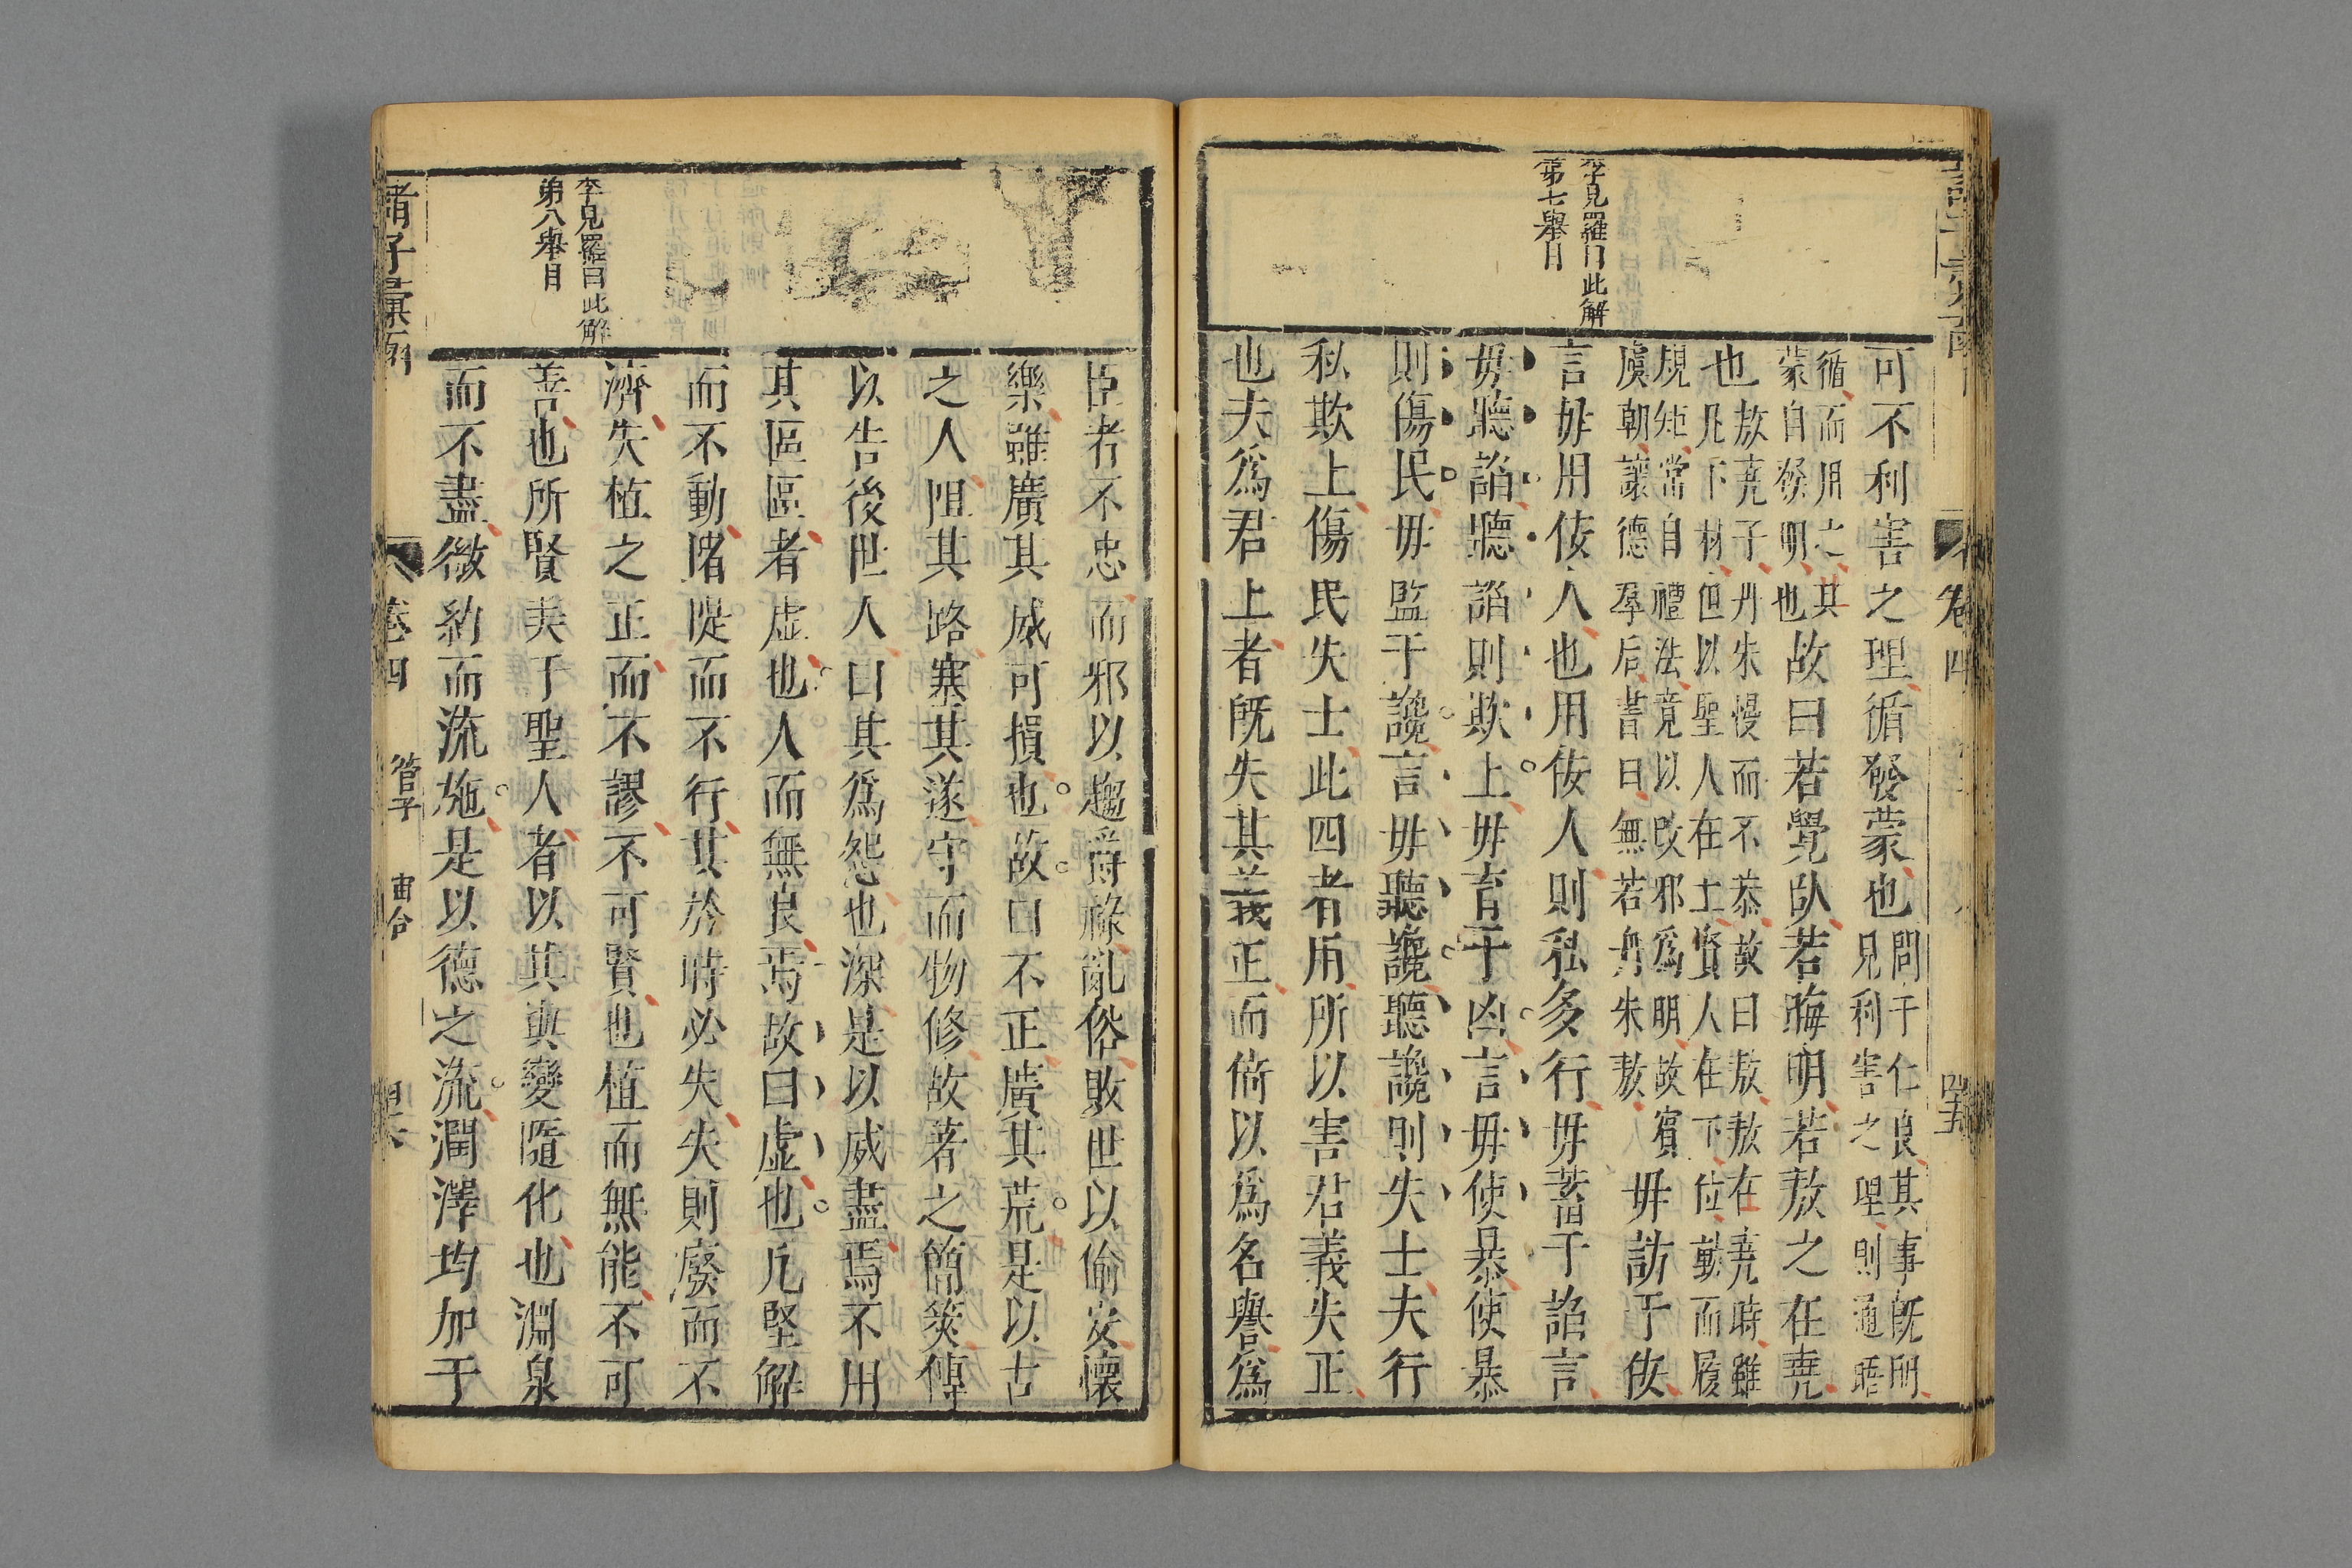 李見羅曰此解
第七舉目
可不利害之理循發蒙也
問于仁良其事既明
見利害之理則通晤
循而用之其
蒙自發明也
故曰若覺臥若晦明若敖之在堯
也
敖堯子丹朱慢而不恭故曰敖敖在堯時雖
凡下材但以聖人在上賢人在下位動而履
規矩常自禮法竟以改邪爲明故賓
虞朝讓德羣后書曰無若丹朱敖
毋訪于佞
言毋用佞人也用佞人則私多行毋蓄于諂言
毋聽諂聽諂則欺上毋育于凶言毋使暴使暴
則傷民毋監于讒言毋聽讒聽讒則失士夫行
私欺上傷民失士此四者用所以害君義失正
也夫爲君上者既失其義正而倚以爲名譽爲
卷四
李見羅曰此解
第八舉目
臣者不忠而邪以趨爵祿亂俗敗世以偷安懷
樂雖廣其威可損也故曰不正廣其荒是以古
之人阻其路塞其遂守而物修故著之簡筴傳
以告後世人曰其爲怨也深是以威盡焉不用
其區區者虛也人而無良焉故曰虛也凡堅解
而不動陼隄而不行其於時必失失則廢而不
濟失植之正而不謬不可賢也植而無能不可
善也所賢美于聖人者以其與變隨化也淵泉
而不盡微約而流施是以德之流潤澤均加于
諸子彙函
卷四
管子
宙合